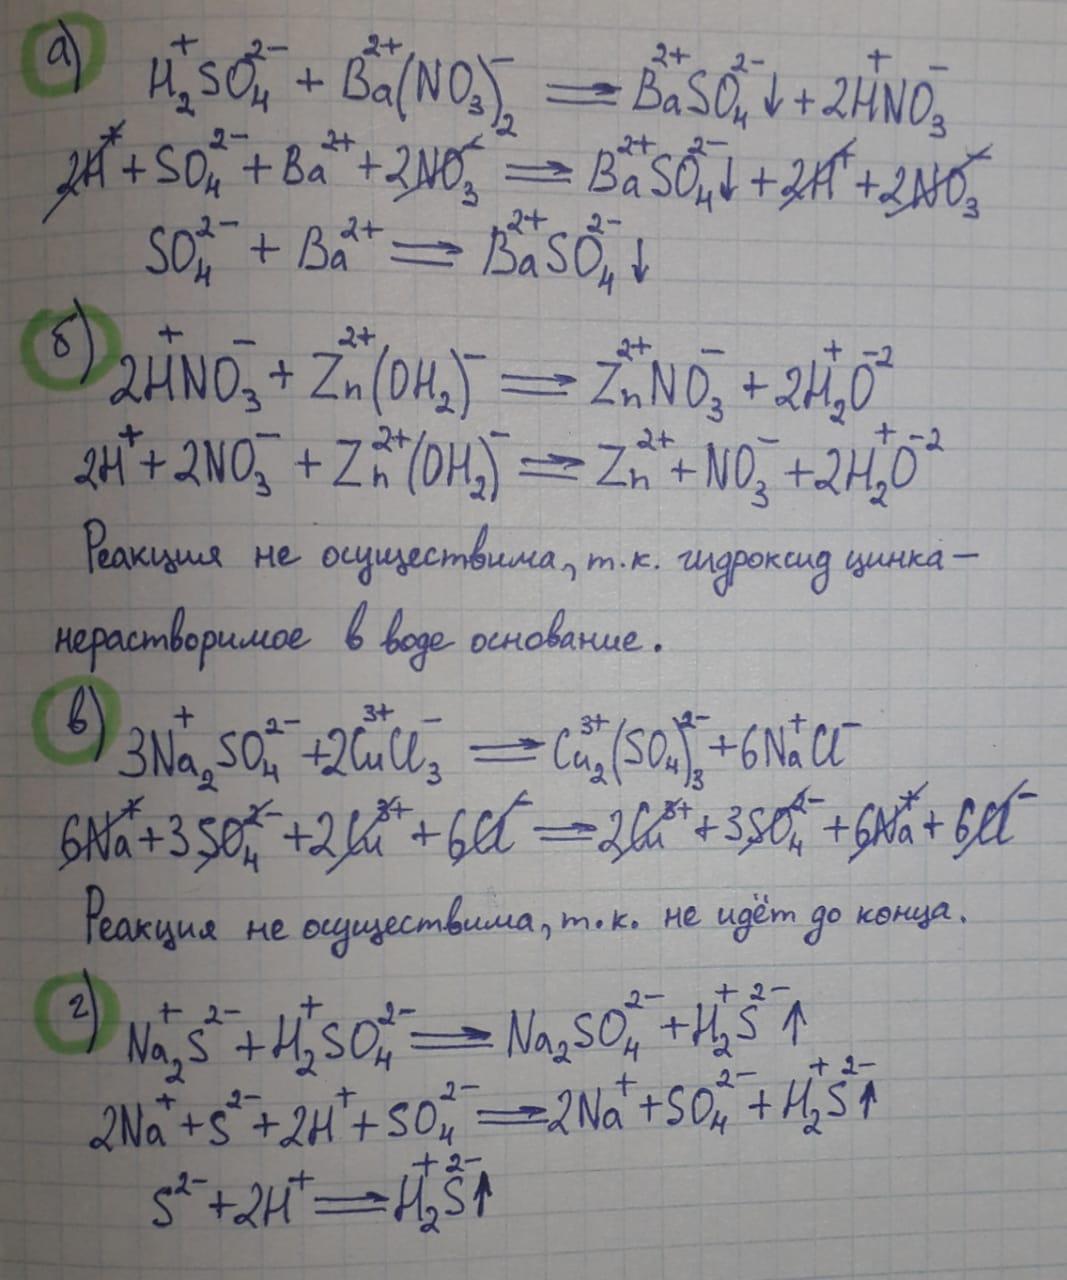 а) H₂⁺SO₄²⁻ + Ba²⁺(NO₃)₂⁻ = BaSO₄²⁺ ²⁻↓ + 2H⁺NO₃⁻
2H⁺ + SO₄²⁻ + Ba²⁺ + 2NO₃⁻ = Ba²⁺SO₄²⁻↓ + 2H⁺ + 2NO₃⁻
SO₄²⁻ + Ba²⁺ = Ba²⁺SO₄²⁻↓
б) 2H⁺NO₃⁻ + Zn²⁺(OH₂)⁻ = Zn²⁺NO₃⁻ + 2H₂⁺O⁻²
2H⁺ + 2NO₃⁻ + Zn²⁺(OH₂)⁻ = Zn²⁺ + NO₃⁻ + 2H₂⁺O⁻²
Реакция не осуществима, т.к. гидроксид цинка –
нерастворимое в воде основание.
в) 3Na₂⁺SO₄²⁻ + 2Cu³⁺Cl₃⁻ = Cu₂³⁺(SO₄)₃²⁻ + 6Na⁺Cl⁻
6Na⁺ + 3SO₄²⁻ + 2Cu³⁺ + 6Cl⁻ = 2Cu³⁺ + 3SO₄²⁻ + 6Na⁺ + 6Cl⁻
Реакция не осуществима, т.к. не идёт до конца.
г) Na₂⁺S²⁻ + H₂⁺SO₄²⁻ = Na₂SO₄²⁻ + H₂⁺S²⁻↑
2Na⁺ + S²⁻ + 2H⁺ + SO₄²⁻ = 2Na⁺ + SO₄²⁻ + H₂⁺S²⁻↑
S²⁻ + 2H⁺ = H₂⁺S²⁻↑